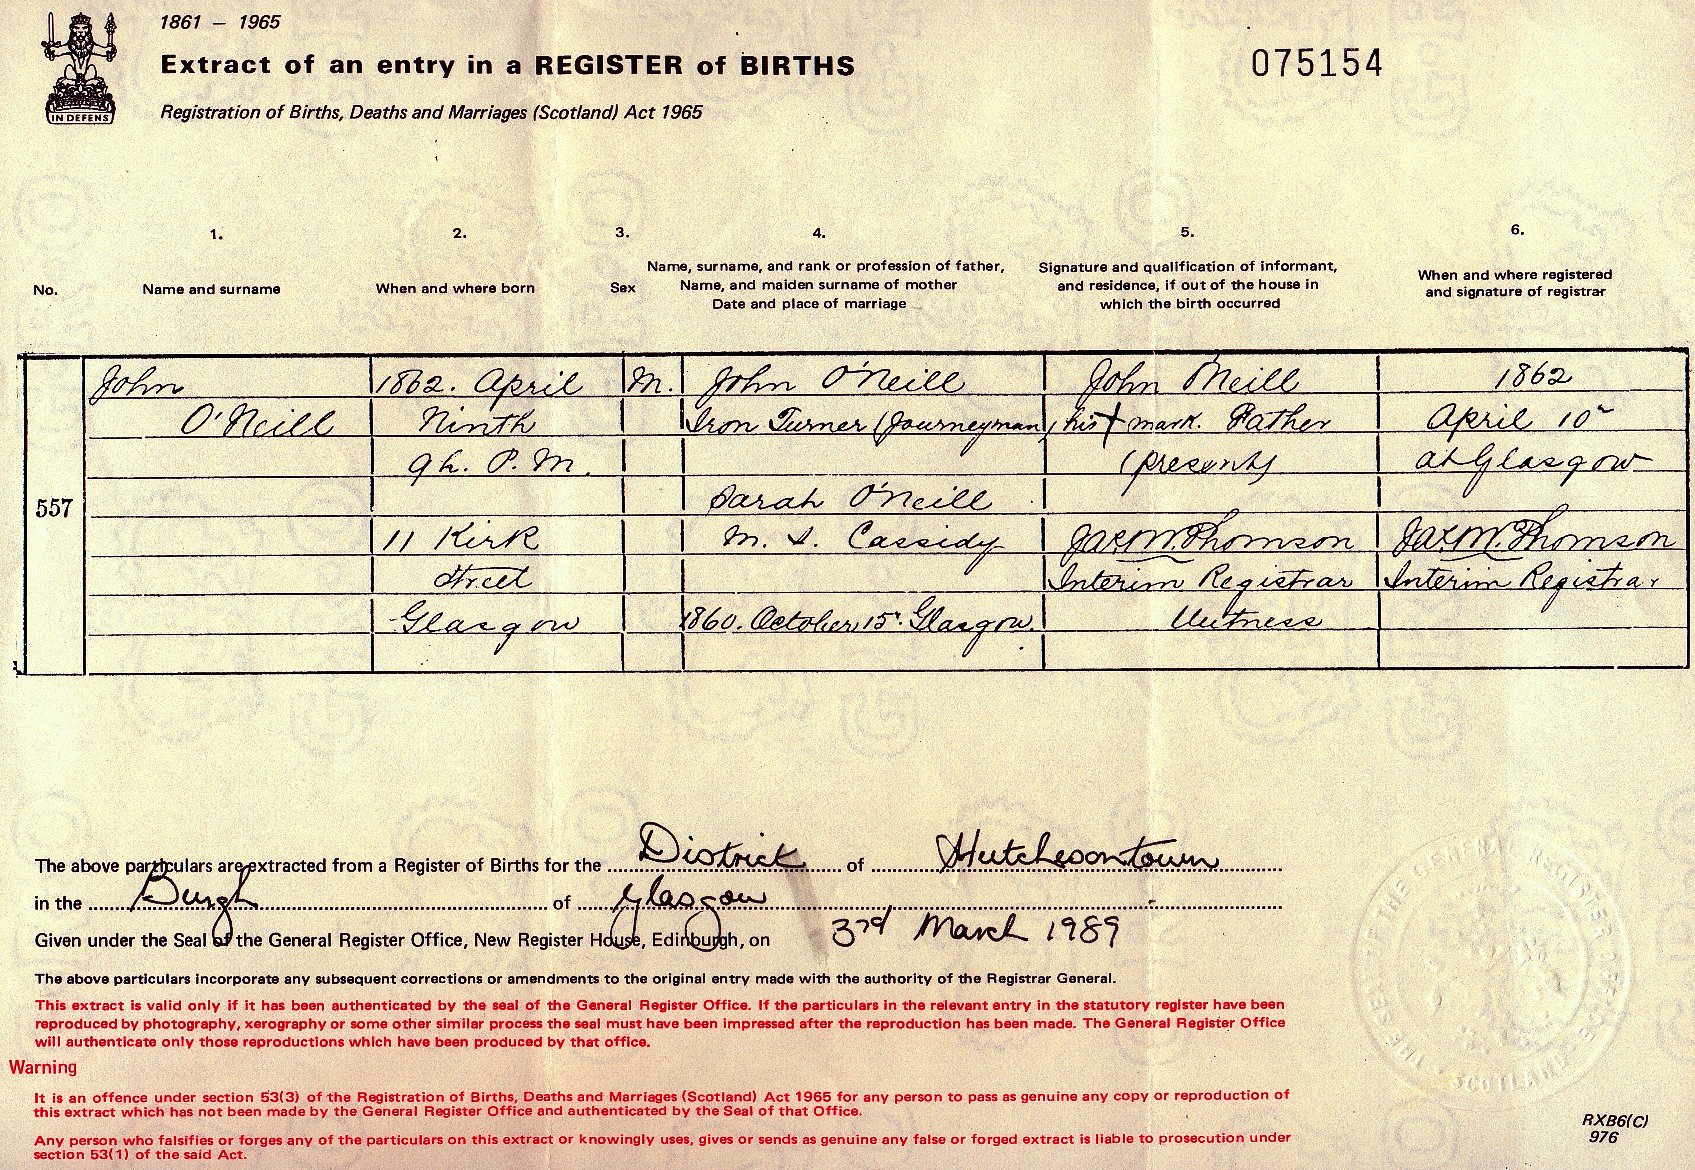 1861 – 1965
Extract of an entry in a REGISTER of BIRTHS
075154
Registration of Births, Deaths and Marriages (Scotland) Act 1965
IN DEFENS
1. 2. 3. 4. 5. 6.
No.
Name and surname
When and where born
Sex
Name, surname, and rank or profession of father,
Name, and maiden surname of mother
Date and place of marriage
Signature and qualification of informant,
and residence, if out of the house in
which the birth occurred
When and where registered
and signature of registrar
557
John
O'Neill
1862. April
Ninth
9h. P.M.
11 Kirk
Street
Glasgow
M.
John O'Neill
Iron Turner (Journeyman)
Sarah O'Neill
M. S. Cassidy
1860. October 15. Glasgow.
John Neill
his + mark. Father
(present)
Jas. W. Thomson
Interim Registrar
Witness
1862
April 10
at Glasgow
Jas. W. Thomson
Interim Registrar
The above particulars are extracted from a Register of Births for the District of Hutchesontown
in the Burgh of Glasgow
Given under the Seal of the General Register Office, New Register House, Edinburgh, on 3rd March 1989
The above particulars incorporate any subsequent corrections or amendments to the original entry made with the authority of the Registrar General.
This extract is valid only if it has been authenticated by the seal of the General Register Office. If the particulars in the relevant entry in the statutory register have been
reproduced by photography, xerography or some other similar process the seal must have been impressed after the reproduction has been made. The General Register Office
will authenticate only those reproductions which have been produced by that office.
Warning
It is an offence under section 53(3) of the Registration of Births, Deaths and Marriages (Scotland) Act 1965 for any person to pass as genuine any copy or reproduction of
this extract which has not been made by the General Register Office and authenticated by the Seal of that Office.
Any person who falsifies or forges any of the particulars on this extract or knowingly uses, gives or sends as genuine any false or forged extract is liable to prosecution under
section 53(1) of the said Act.
RXB6(C)
976